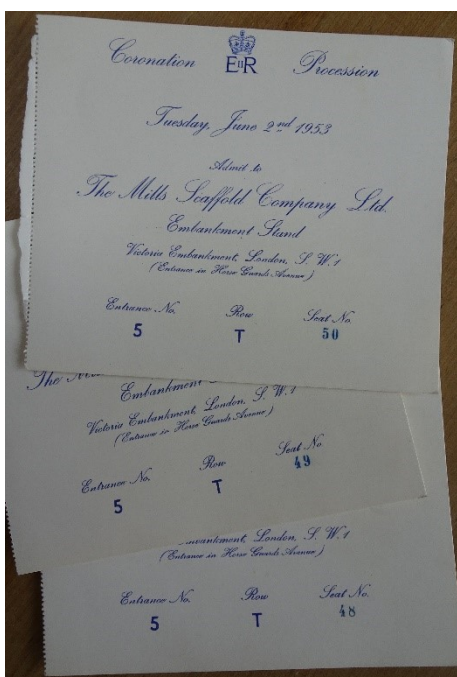 Coronation EIIR Procession
Tuesday, June 2nd 1953
Admit to
The Mills Scaffold Company Ltd.
Embankment Stand
Victoria Embankment, London, S. W.1
(Entrance in Horse Guards Avenue)
Entrance No. Row Seat No.
5 T 50
The
Embankment
Victoria Embankment, London, S. W.1
(Entrance in Horse Guards Avenue)
Entrance No. Row Seat No
5 T 49
London, S. W.1
(Entrance in Horse Guards Avenue)
Entrance No. Row Seat No.
5 T 48